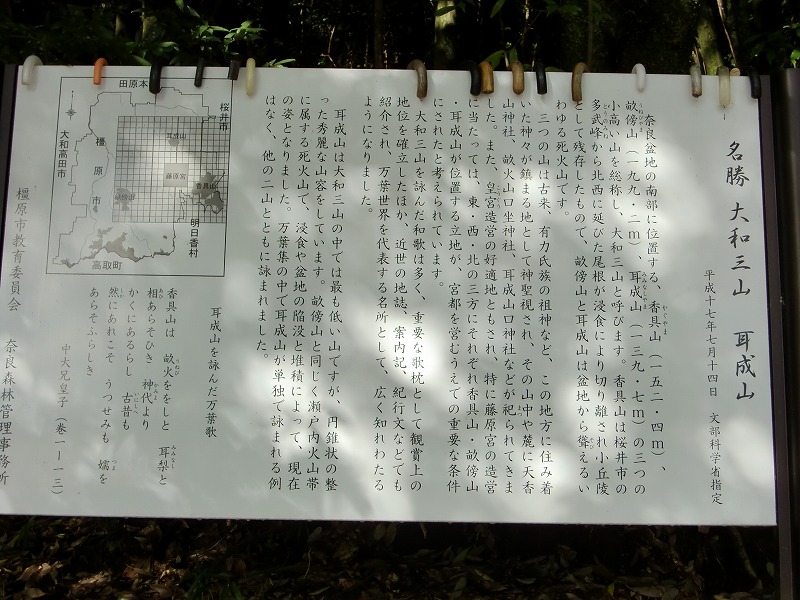 名勝 大和三山 耳成山
平成十七年七月十四日 文部科学省指定
奈良盆地の南部に位置する、香具山（一五二・四ｍ）、
畝傍山（一九九・二ｍ）、耳成山（一三九・七ｍ）の三つの
小高い山を総称し、大和三山と呼びます。香具山は桜井市の
多武峰から北西に延びた尾根が浸食により切り離され小丘陵
として残存したもので、畝傍山と耳成山は盆地から聳えるい
わゆる死火山です。
三つの山は古来、有力氏族の祖神など、この地方に住み着
いた神々が鎮まる地として神聖視され、その山中や麓に天香
山神社、畝火山口坐神社、耳成山口神社などが祀られてきま
した。また、皇宮造営の好適地ともされ、特に藤原宮の造営
に当たっては、東・西・北の三方にそれぞれ香具山・畝傍山
・耳成山が位置する立地が、宮都を営むうえでの重要な条件
にされたと考えられています。
大和三山を詠んだ和歌は多く、重要な歌枕として観賞上の
地位を確立したほか、近世の地誌、案内記、紀行文などでも
紹介され、万葉世界を代表する名所として、広く知れわたる
ようになりました。
耳成山は大和三山の中では最も低い山ですが、円錐状の整
った秀麗な山容をしています。畝傍山と同じく瀬戸内火山帯
に属する死火山で、浸食や盆地の陥没と堆積によって、現在
の姿となりました。万葉集の中で耳成山が単独で詠まれる例
はなく、他の二山とともに詠まれました。
耳成山を詠んだ万葉歌
香具山は 畝火ををしと 耳梨と
相あらそひき 神代より
かくにあるらし 古昔も
然にあれこそ うつせみも 嬬を
あらそふらしき
中大兄皇子（巻一ー一三）
田原本町
桜井市
大和高田市
橿原市
耳成山
藤原宮
香具山
畝傍山
明日香村
高取町
橿原市教育委員会 奈良森林管理事務所